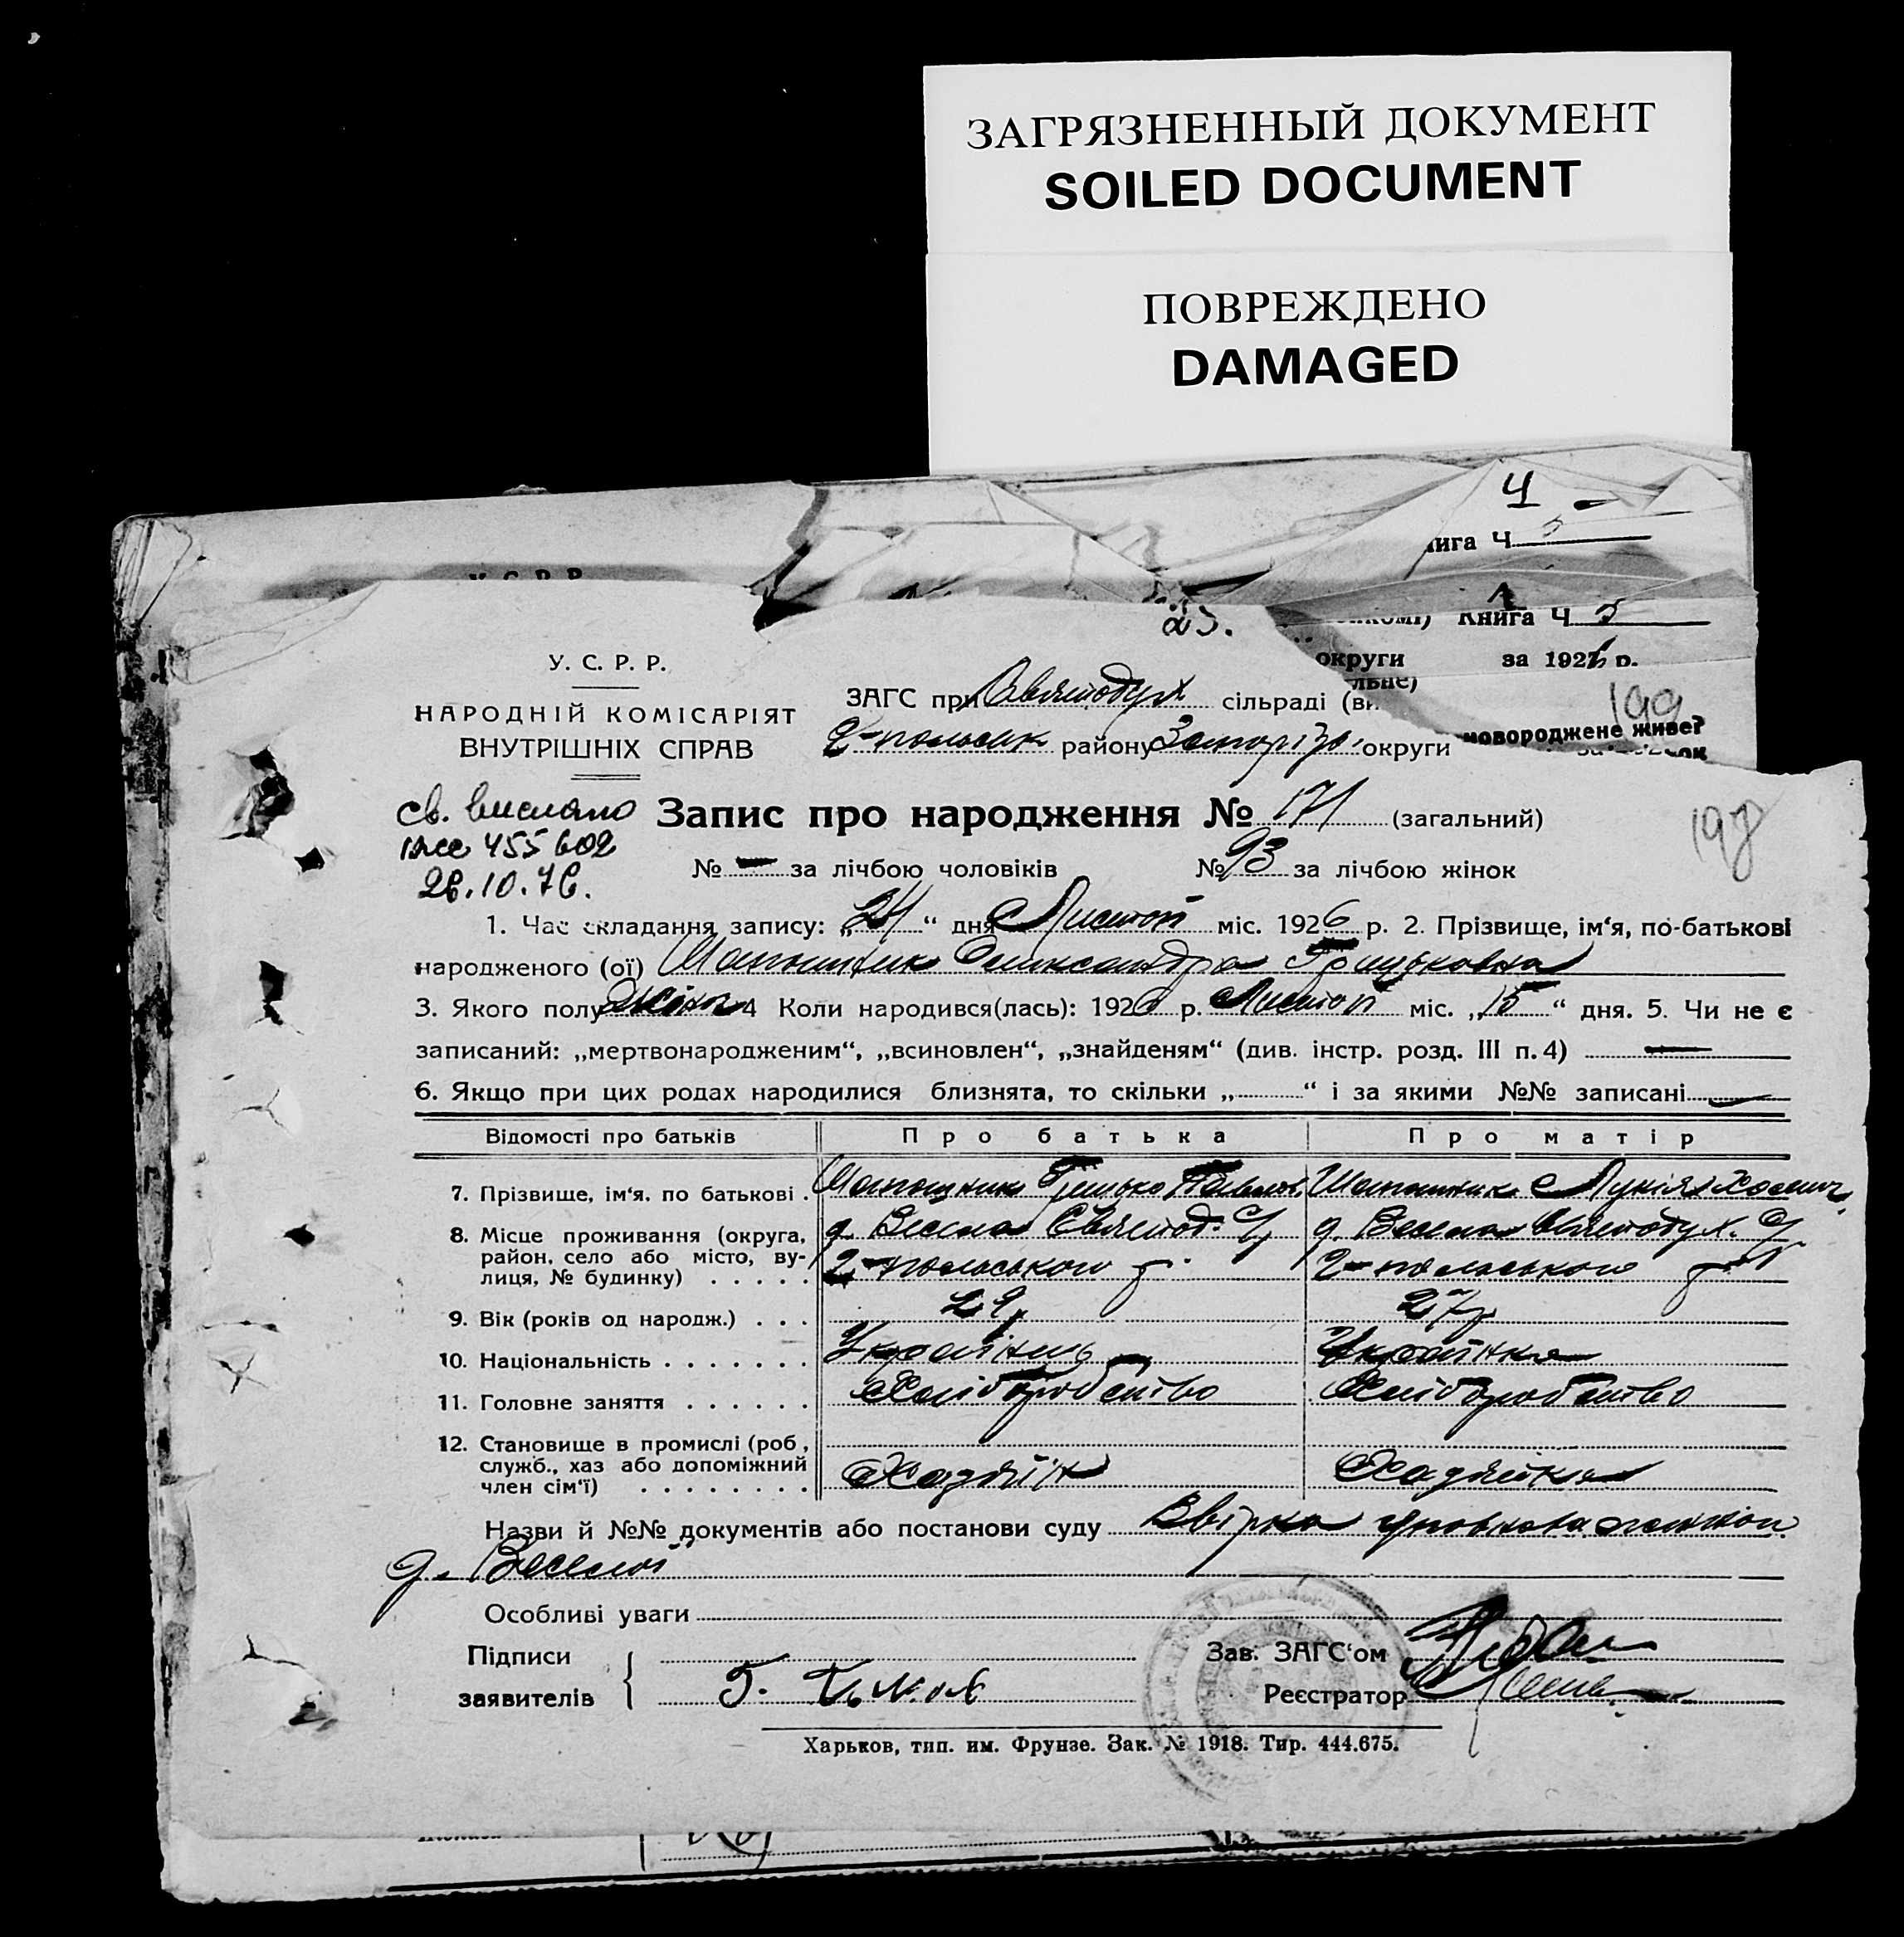 ЗАГРЯЗНЕННЫЙ ДОКУМЕНТ
SOILED DOCUMENT
ПОВРЕЖДЕНО
DAMAGED
Ч
Книга Ч
округи за 192 р.
новороджене живе?
199
У. С. Р. Р.
НАРОДНІЙ КОМІСАРІЯТ
ВНУТРІШНІХ СПРАВ
ЗАГС при Святодух сільраді
2-польськ району Запоріз. округи
св. выслано
455602
26.10.76.
Запис про народження № 171 (загальний)
198
№ — за лічбою чоловіків № 93 за лічбою жінок
1. Час складання запису: „24“ дня Листоп міс. 1926 р. 2. Прізвище, ім‘я, по-батькові
народженого (ої) Шапошник Олександра Грицьковна
3. Якого полу жіноч 4 Коли народився(лась): 1926 р. Листоп міс. „15“ дня. 5. Чи не є
записаний: „мертвонародженим“, „всиновлен“, „знайденям“ (див. інстр. розд. III п. 4) —
6. Якщо при цих родах народилися близнята, то скільки „ “ і за якими №№ записані —
Відомості про батьків Про батька Про матір
7. Прізвище, ім‘я, по батькові . Шапошник Грицько Павлов. Шапошник Лукія
8. Місце проживання (округа, район, село або місто, вулиця, № будинку) . . . . . д. Весела Святод. С/ д. Весела Святодух. С/
2-польського р. 2-польського р
9. Вік (років од народж.) . . . 29р 27р
10. Національність . . . . . . . Українець Українка
11. Головне заняття . . . . . . Хліборобство Хліборобство
12. Становище в промислі (роб, служб., хаз або допоміжний член сім‘ї) . . . . . . . . Хазяїн Хазяйка
Назви й №№ документів або постанови суду Звірка
д. Веселої
Особливі уваги
Підписи
заявителів
Зав. ЗАГС‘ом
Реєстратор
Харьков, тип. им. Фрунзе. Зак. № 1918. Тир. 444.675.